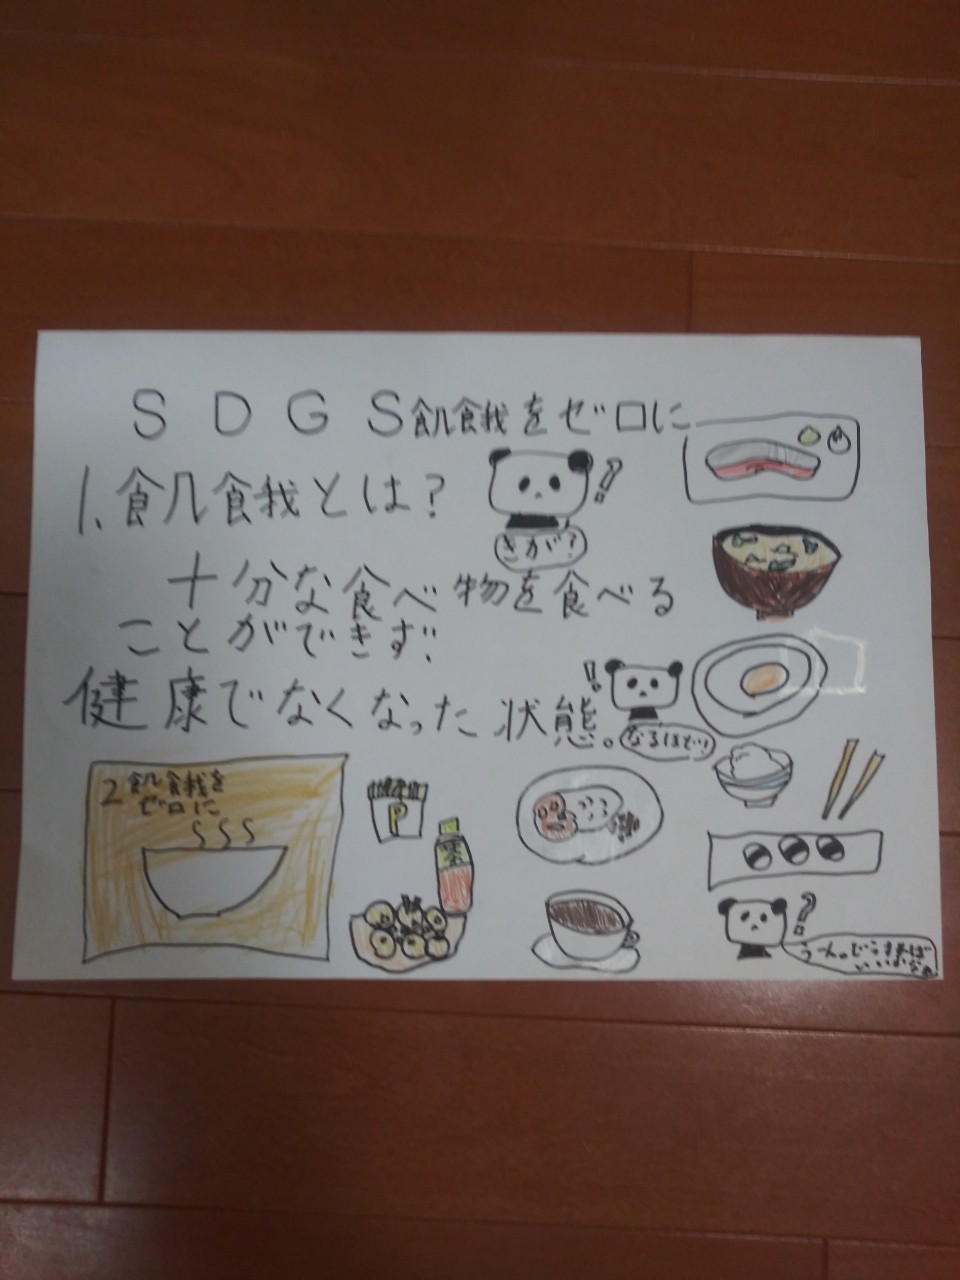 SDGS飢餓をゼロに
1.飢餓とは?
きが?
十分な食べ物を食べる
ことができず、
健康でなくなった状態。
なるほど!
2飢餓を
ゼロに
P
うーん。どうすれば
いいかなぁ